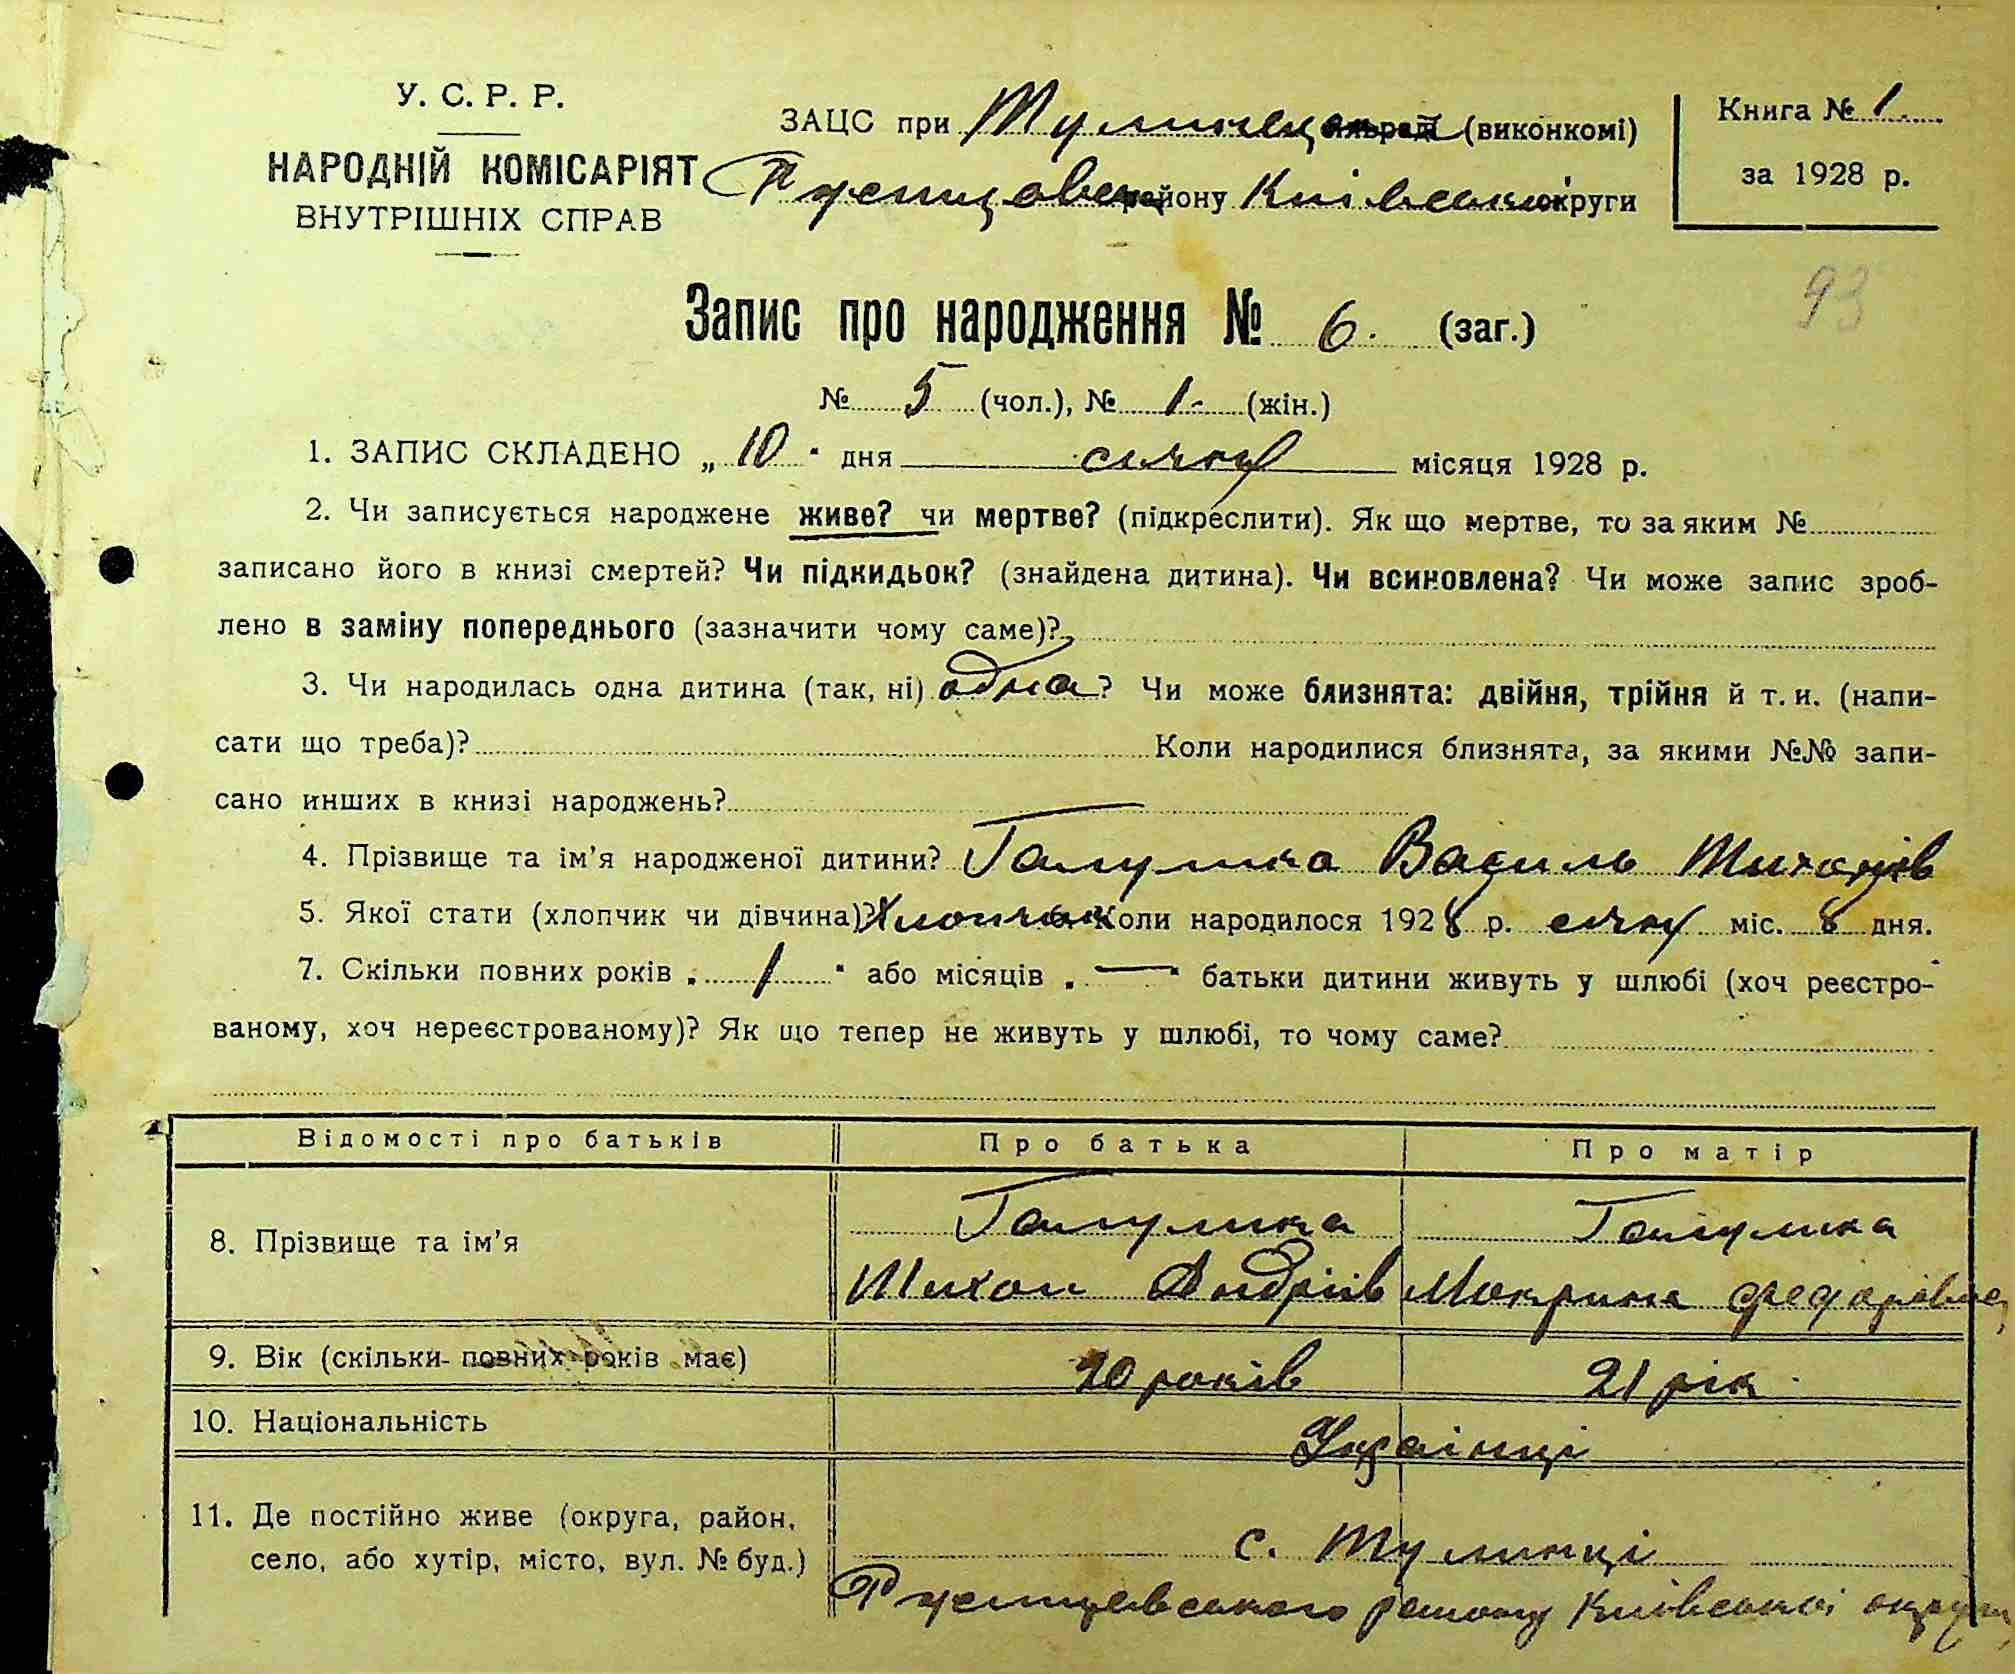 У. С. Р. Р.
НАРОДНІЙ КОМІСАРІЯТ
ВНУТРІШНІХ СПРАВ
ЗАЦС при Тулинецк сільраді (виконкомі)
Ржищевськ району Київської округи
Книга № 1.
за 1928 р.
93
Запис про народження № 6. (заг.)
№ 5 (чол.), № 1. (жін.)
1. ЗАПИС СКЛАДЕНО „ 10 " дня січня місяця 1928 р.
2. Чи записується народжене живе? чи мертве? (підкреслити). Як що мертве, то за яким №
записано його в книзі смертей? Чи підкидьок? (знайдена дитина). Чи всиновлена? Чи може запис зроб-
лено в заміну попереднього (зазначити чому саме)?
3. Чи народилась одна дитина (так, ні) одна? Чи може близнята: двійня, трійня й т. и. (напи-
сати що треба)? Коли народилися близнята, за якими №№ запи-
сано инших в книзі народжень?
4. Прізвище та ім'я народженої дитини? Галушка Василь Тихонів
5. Якої стати (хлопчик чи дівчина)? Хлопчик Коли народилося 1928 р. січня міс. 8 дня.
7. Скільки повних років „ 1 " або місяців „ — " батьки дитини живуть у шлюбі (хоч реєстро-
ваному, хоч нереєстрованому)? Як що тепер не живуть у шлюбі, то чому саме?
Відомості про батьків Про батька Про матір
8. Прізвище та ім'я Галушка Галушка
Тихон Андріїв Мокрина Федорівна
9. Вік (скільки повних років має) 20 років 21 рік
10. Національність Українці
11. Де постійно живе (округа, район,
село, або хутір, місто, вул. № буд.) с. Тулинці
Ржищевського району Київської округи